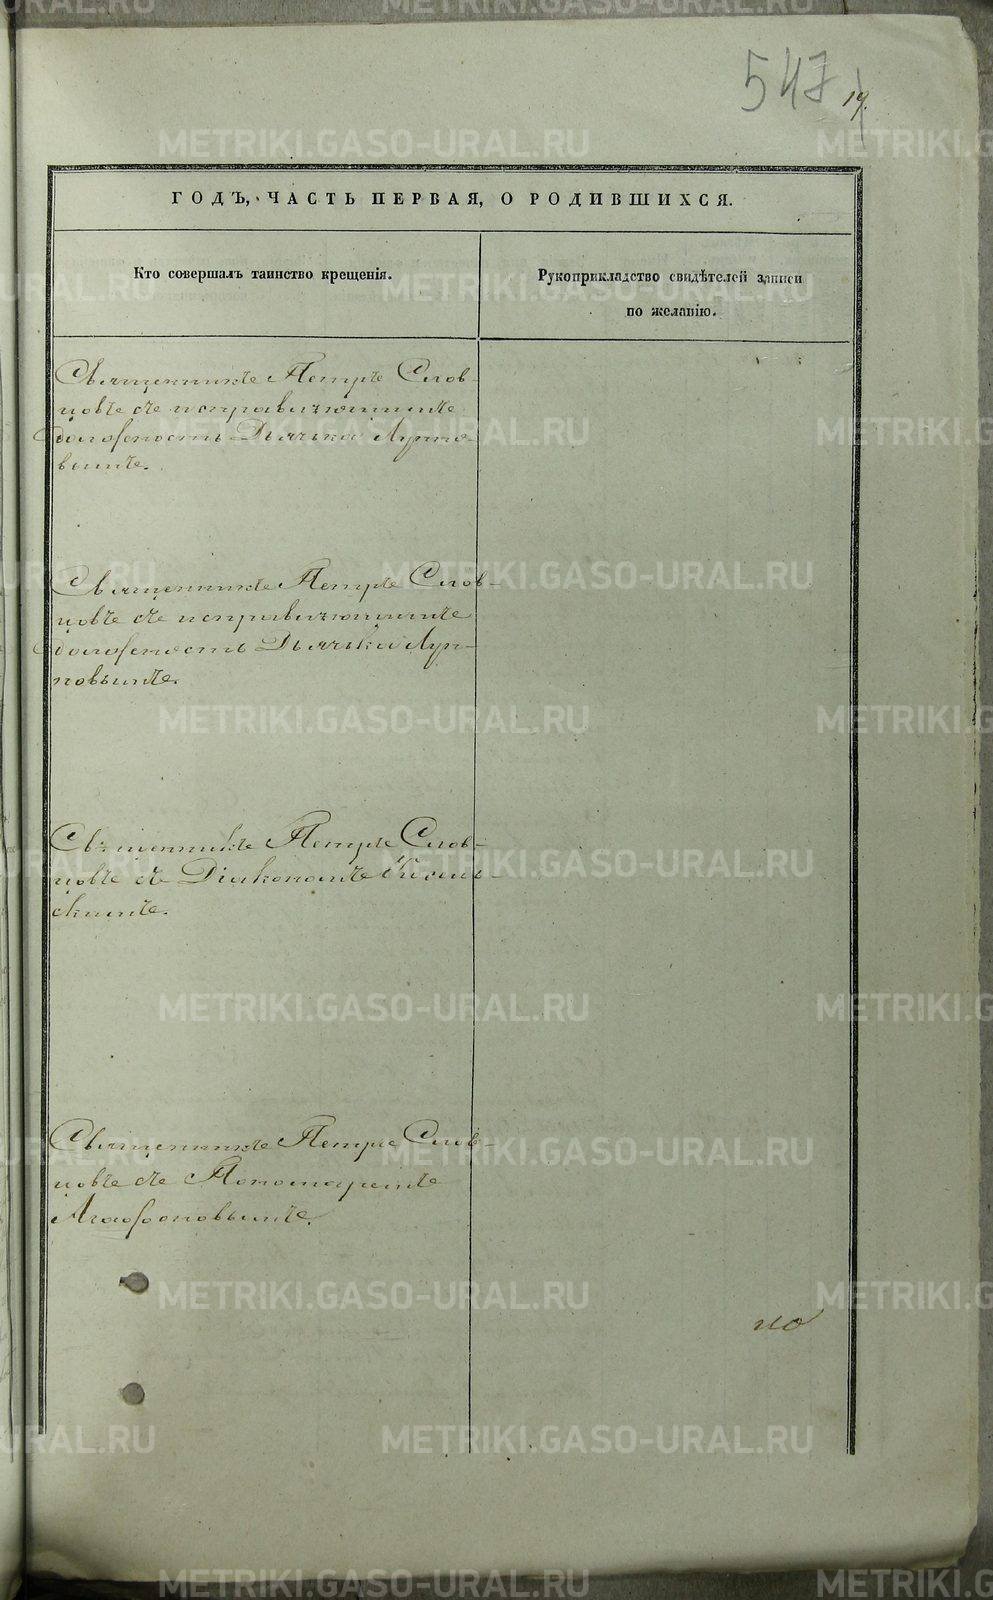 547
19.
ГОДЪ, ЧАСТЬ ПЕРВАЯ, О РОДИВШИХСЯ.
Кто совершалъ таинство крещенія.
Рукоприкладство свидѣтелей записи
по желанію.
Священникъ Петръ Слов-
цовъ съ исправляющимъ
должность Дьячка Лупповымъ
Священникъ Петръ Слов-
цовъ съ исправляющимъ
должность Дьячка Луп-
повымъ.
Священникъ Петръ Слов-
цовъ съ Діакономъ
скимъ.
Священникъ Петръ Слов-
цовъ съ Пономаремъ
Агафоновымъ.
но
METRIKI.GASO-URAL.RU